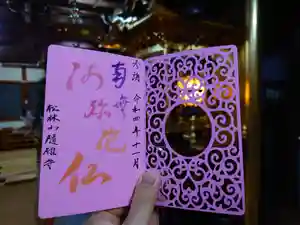 奉拝 令和四年十一月
南無
阿弥陀仏
松林山